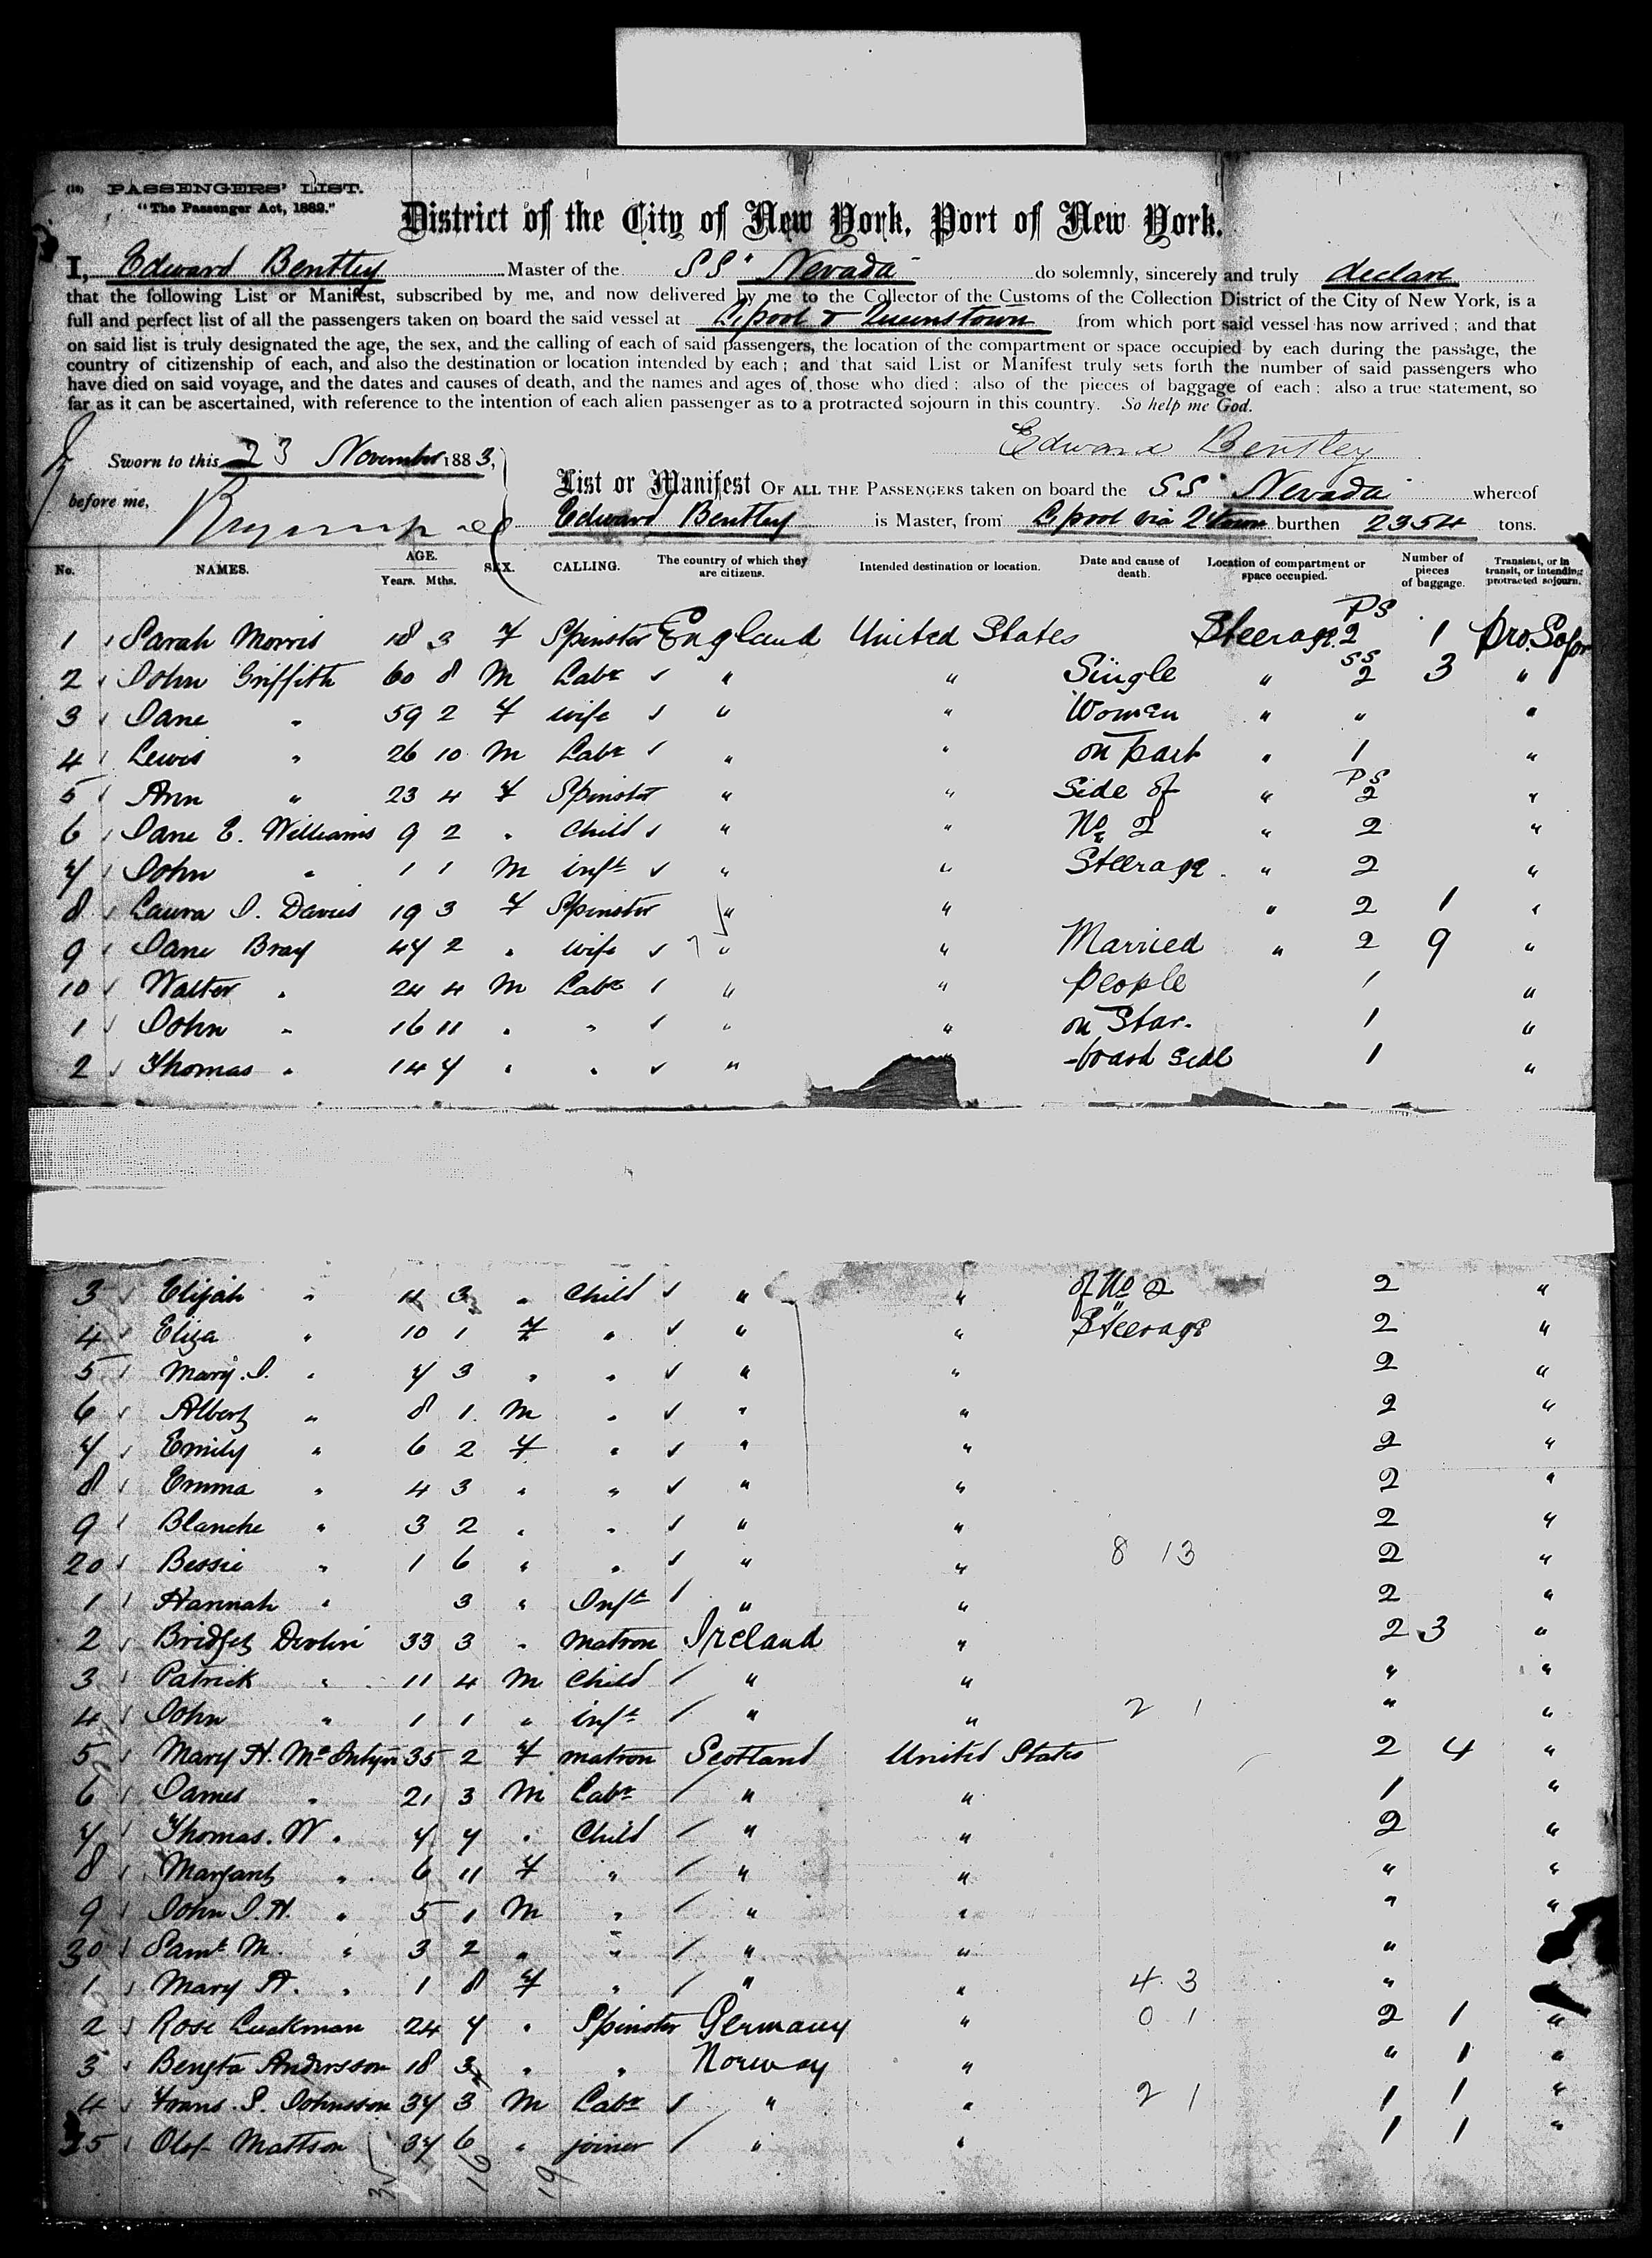 (10) PASSENGERS' LIST.
"The Passenger Act, 1882."
District of the City of New York, Port of New York.
I, Edward Bentley Master of the SS "Nevada" do solemnly, sincerely and truly declare
that the following List or Manifest, subscribed by me, and now delivered by me to the Collector of the Customs of the Collection District of the City of New York, is a
full and perfect list of all the passengers taken on board the said vessel at L'pool & Queenstown from which port said vessel has now arrived; and that
on said list is truly designated the age, the sex, and the calling of each of said passengers, the location of the compartment or space occupied by each during the passage, the
country of citizenship of each, and also the destination or location intended by each; and that said List or Manifest truly sets forth the number of said passengers who
have died on said voyage, and the dates and causes of death, and the names and ages of those who died; also of the pieces of baggage of each; also a true statement, so
far as it can be ascertained, with reference to the intention of each alien passenger as to a protracted sojourn in this country. So help me God.
Edward Bentley
Sworn to this 23 November 1883,
before me,
List or Manifest OF ALL THE PASSENGERS taken on board the SS "Nevada" whereof
Edward Bentley is Master, from L'pool via Q'town burthen 2354 tons.
No. NAMES. AGE. Years. Mths. SEX. CALLING. The country of which they are citizens. Intended destination or location. Date and cause of death. Location of compartment or space occupied. Number of pieces of baggage. Transient, or in transit, or intending protracted sojourn.
1 Sarah Morris 18 3 F Spinster England United States Steerage PS 2 1 pro. Sojor
2 John Griffith 60 8 M Labr " " Single " SS 2 3 "
3 Jane " 59 2 F wife " " Women " " "
4 Lewis " 26 10 M Labr " " on part " 1 "
5 Ann " 23 4 F Spinster " " Side of " PS 2 "
6 Jane E. Williams 9 2 " Child " " No 2 " 2 "
7 John " 1 1 M inft " " Steerage " 2 "
8 Laura J. Davies 19 3 F Spinster " " " 2 1 "
9 Jane Bray 47 2 " wife " " Married " 2 9 "
10 Walter " 24 4 M Labr " " People 1 "
1 John " 16 11 " " " " on Star- 1 "
2 Thomas " 14 7 " " " -board side 1 "
3 Elijah " 11 3 " Child " " of No 2 2 "
4 Eliza " 10 1 F " " " Steerage 2 "
5 Mary J. " 7 3 " " " " 2 "
6 Albert " 8 1 M " " " 2 "
7 Emily " 6 2 F " " " 2 "
8 Emma " 4 3 " " " " 2 "
9 Blanche " 3 2 " " " " 2 "
20 Bessie " 1 6 " " " " 8 13 2 "
1 Hannah " 3 " Inft " " 2 "
2 Bridget Devlin 33 3 " matron Ireland " 2 3 "
3 Patrick " 11 4 M Child " " " "
4 John " 1 1 " inft " " 2 1 " "
5 Mary H. McIntyre 35 2 F matron Scotland United States 2 4 "
6 James " 21 3 M Labr " " 1 "
7 Thomas. W " 7 7 " Child " " 2 "
8 Margaret " 6 11 F " " " " "
9 John J. H. " 5 1 M " " " " "
30 Saml M. " 3 2 " " " " " "
1 Mary A. " 1 8 F " " " 4 3 " "
2 Rose Luckman 24 7 " Spinster Germany " 0 1 2 1 "
3 Bengta Andersson 18 3 " " Norway " " 1 "
4 Frans. P. Johnsson 37 3 M Labr " " 2 1 1 1 "
35 Olof Mattson 37 6 " joiner " " 1 1 "
35 16 19